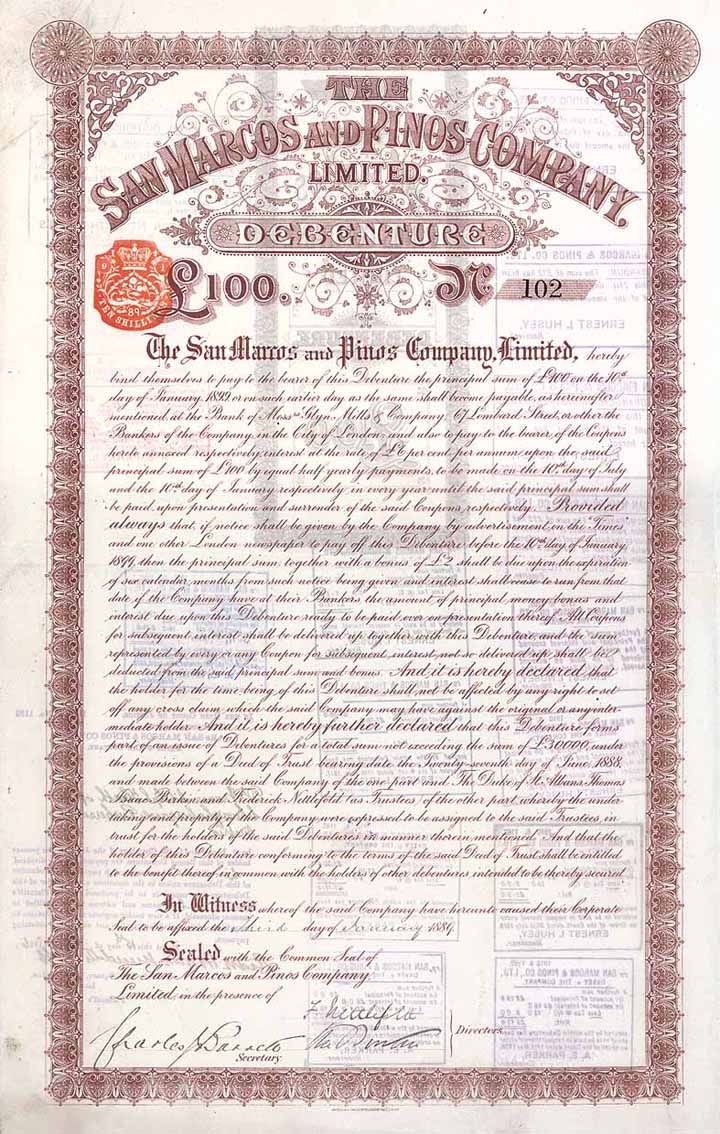 THE
SAN MARCOS AND PINOS COMPANY,
LIMITED.
DEBENTURE
TEN SHILLINGS
89
£100. No 102
The San Marcos and Pinos Company, Limited, hereby
bind themselves to pay to the bearer of this Debenture the principal sum of £100 on the 10th
day of January 1899 or on such earlier day as the same shall become payable, as hereinafter
mentioned at the Bank of Messrs Glyn, Mills & Company, 67 Lombard Street, or other the
Bankers of the Company in the City of London and also to pay to the bearer of the Coupons
hereto annexed respectively interest at the rate of £6 per cent per annum upon the said
principal sum of £100 by equal half yearly payments, to be made on the 10th day of July
and the 10th day of January respectively in every year until the said principal sum shall
be paid upon presentation and surrender of the said Coupons respectively. Provided
always that if notice shall be given by the Company by advertisement in the "Times"
and one other London newspaper to pay off this Debenture before the 10th day of January
1899 then the principal sum together with a bonus of £2 shall be due upon the expiration
of six calendar months from such notice being given and interest shall cease to run from that
date if the Company have at their Bankers the amount of principal money bonus and
interest due upon this Debenture ready to be paid over on presentation thereof. All Coupons
for subsequent interest shall be delivered up together with this Debenture and the sum
represented by every or any Coupon for subsequent interest not so delivered up shall be
deducted from the said principal sum and bonus. And it is hereby declared that
the holder for the time being of this Debenture shall not be affected by any right to set
off any cross claim which the said Company may have against the original or any inter-
mediate holder. And it is hereby further declared that this Debenture forms
part of an issue of Debentures for a total sum not exceeding the sum of £30000 under
the provisions of a Deed of Trust bearing date the Twenty-seventh day of June, 1888,
and made between the said Company of the one part and The Duke of St Albans Thomas
Isaac Birkin and Frederick Nettlefold (as Trustees) of the other part whereby the under
taking and property of the Company were expressed to be assigned to the said Trustees, in
trust for the holders of the said Debentures in manner therein mentioned. And that the
holder of this Debenture conforming to the terms of the said Deed of Trust shall be entitled
to the benefit thereof in common with the holders of other debentures intended to be thereby secured.
In Witness whereof the said Company have hereunto caused their Corporate
Seal to be affixed the Third day of January 1889.
Sealed with the Common Seal of
The San Marcos and Pinos Company,
Limited, in the presence of
Secretary.
Directors.